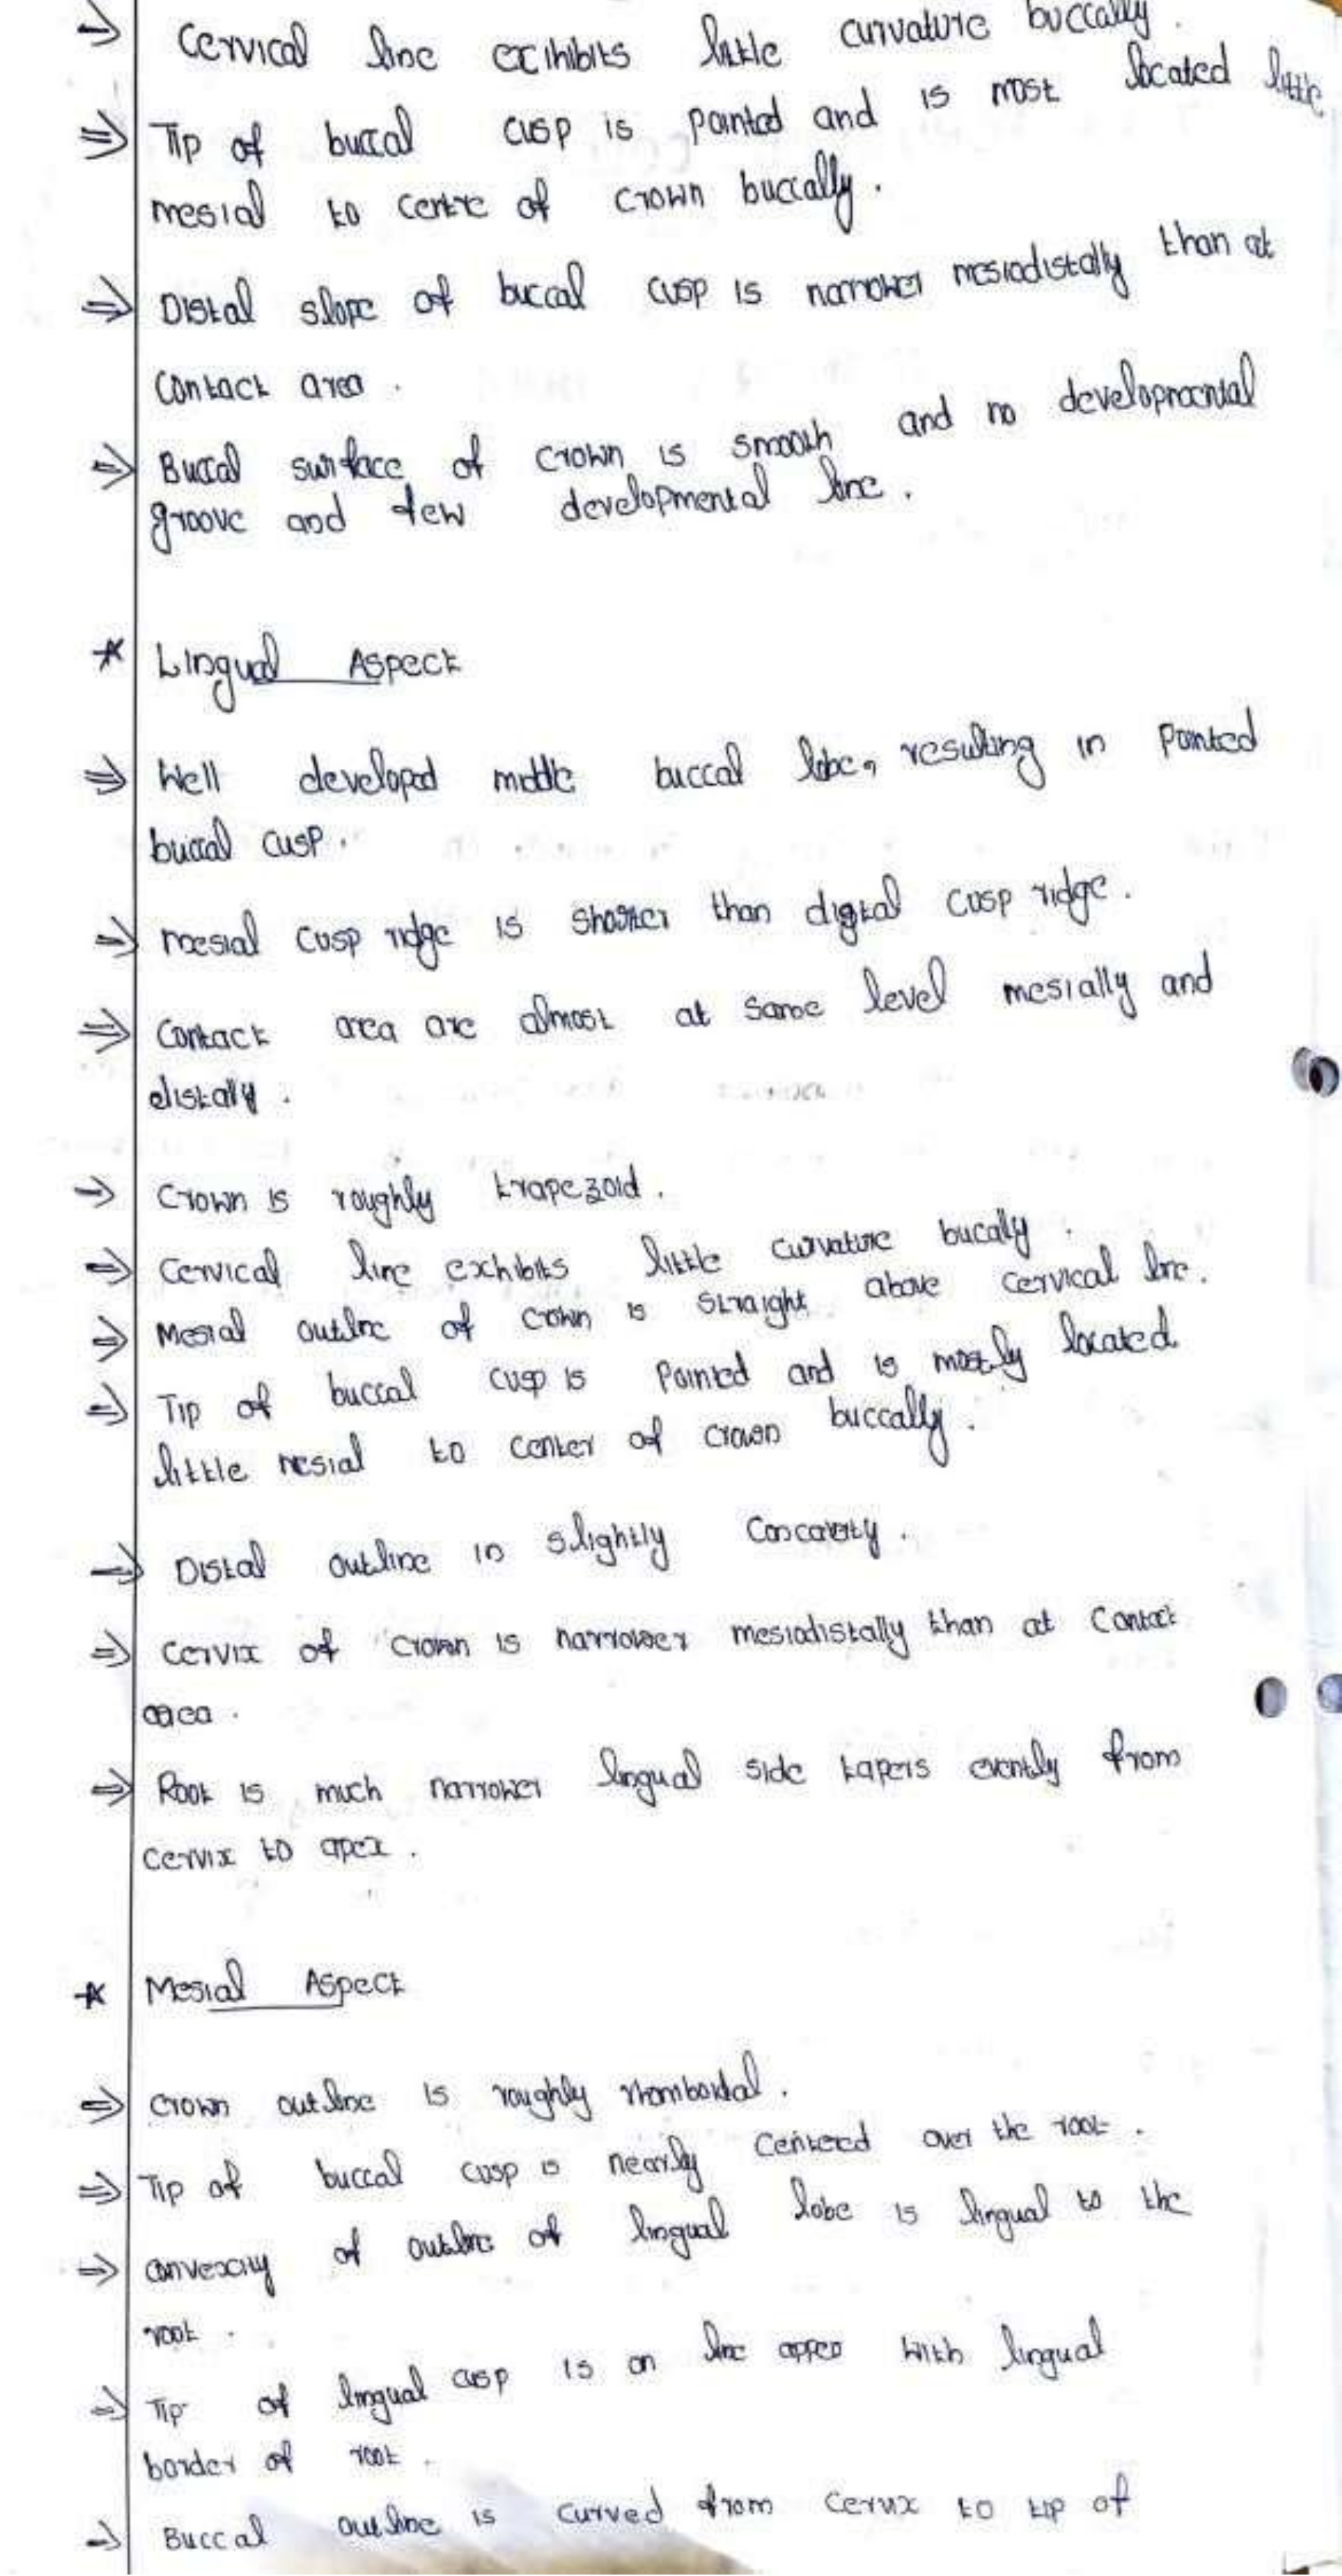 ⇒ Cervical line excihibits little curvature buccally.
⇒ Tip of buccal cusp is pointed and is most located little
mesial to centre of crown buccally.
⇒ Distal slope of buccal cusp is narrower mesiodistally than at
contact area.
⇒ Buccal surface of crown is smooth and no developmental
groove and few developmental line.
* Lingual Aspect
⇒ Well developed middle buccal lobe, resulting in pointed
buccal cusp.
⇒ mesial cusp ridge is shorter than digtal cusp ridge.
⇒ Contact area are almost at same level mesially and
distally.
⇒ Crown is roughly trapezoid.
⇒ Cervical line exhibits little curvature bucally.
⇒ Mesial outline of crown is straight above cervical line.
⇒ Tip of buccal cusp is pointed and is mostly located
little mesial to center of crown buccally.
⇒ Distal outline in slightly concavity.
⇒ Cervix of crown is narrower mesiodistally than at contact
area.
⇒ Root is much narrower lingual side tapers evently from
cervix to apex.
* Mesial Aspect
⇒ Crown outline is roughly rhomboidal.
⇒ Tip of buccal cusp is nearly centered over the root.
⇒ convexity of outline of lingual lobe is lingual to the
root.
⇒ Tip of lingual cusp is on line with lingual
border of root.
⇒ Buccal outline is curved from cervix to tip of